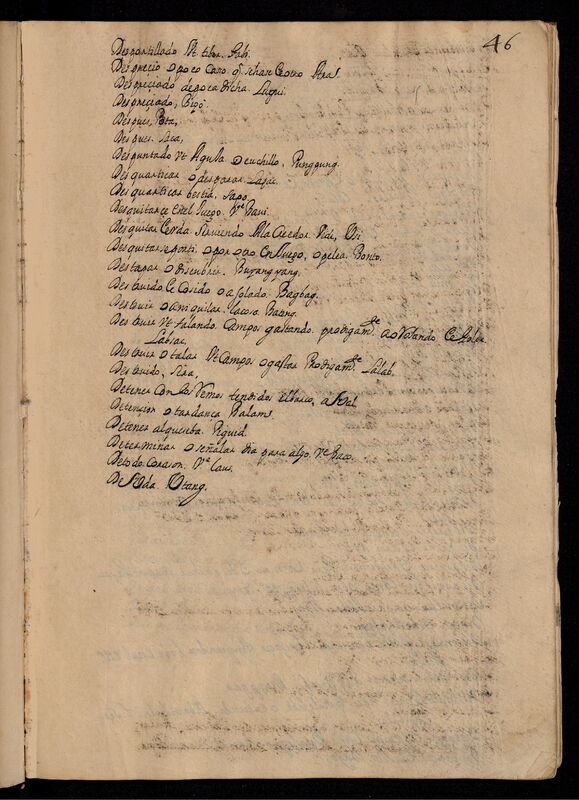 46
Desportillado Vt tibor. Sabi.
Desprecio o poco caso q̃ se hase
Despreciado de poca dicha. Lugui
Despreciado, Bisó.
Despues, Bta,
Despues. Saca,
Despuntado Vt Aguja o cuchillo, Punggung.
Desquartisar o desparar Lasac.
Desquartisar bestia, Sapo
Desquitarse en el Juego. Vᵉ Baui.
Desquilar Cerda sirviendo
Desquitarse o por oro en Juego, o pelea. Bonto.
Destapar o descubrir. Buyangyang.
Destruido lo Cosido o asolado. Bagbag.
Destruir o aniquilar. Batang.
Destruir Vt talando Campos gastando prodigamᵗᵉ
Labsac.
Destruir o talar Vt Campos o gastar Prodigamᵗᵉ Salab
Destruido, Sira,
Detener Con los Remos tendidos
Detencion o tardança Balam
Detener alque se va. Piguid.
Determinar o señalar dia para algo. Vᵉ Taco.
Detodo Corason. Vᵉ Caus.
Deuda Otang.